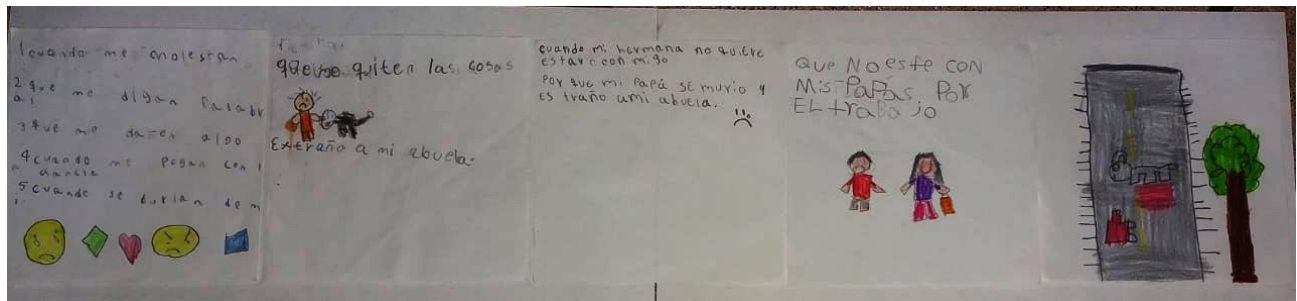 1 cuando me molestan
2 que me digan Palabr
3 que me dañen algo
4 cuando me Pegan con
5 cuando se burlan de m
que me quiten las cosas
Extraño a mi abuela.
cuando mi hermana no quiere
estar con migo
Por que mi Papá se murio y
es traño ami abuela.
Que No este con
Mis Papas Por
EL trabajo